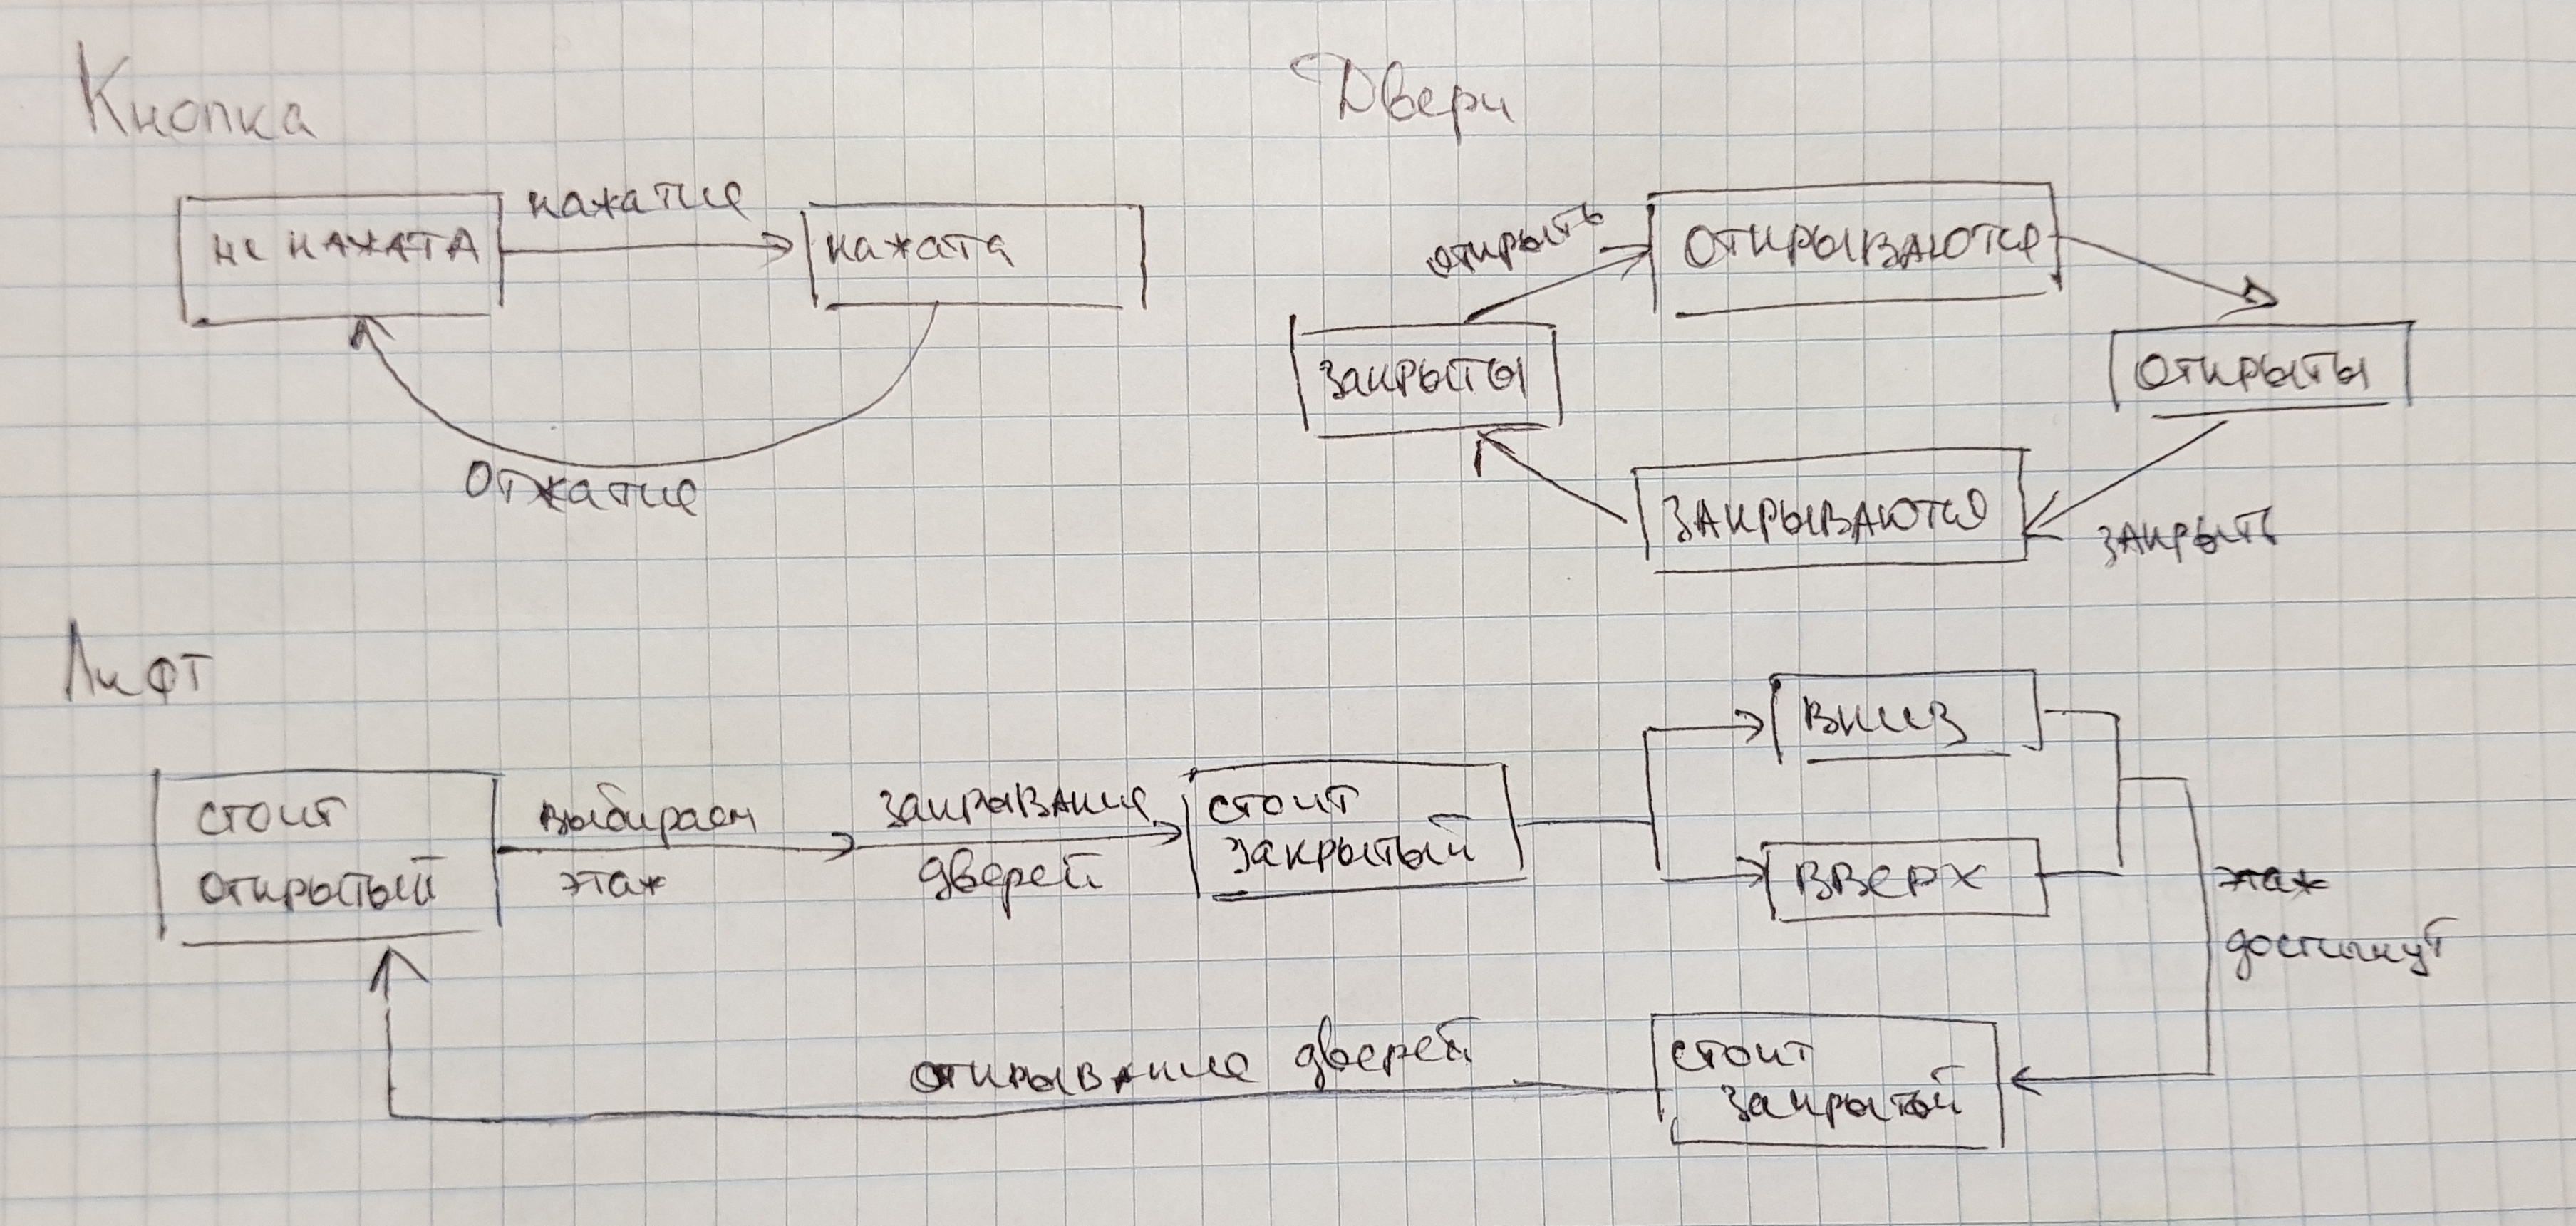 Кнопка
Двери
не нажата
нажатие
нажата
отжатие
закрыты
открыть
открываются
открыты
закрыть
закрываются
Лифт
стоит
открытый
выбираем
этаж
закрывание
дверей
стоит
закрытый
вниз
вверх
этаж
достигнут
стоит
закрытый
открывание дверей